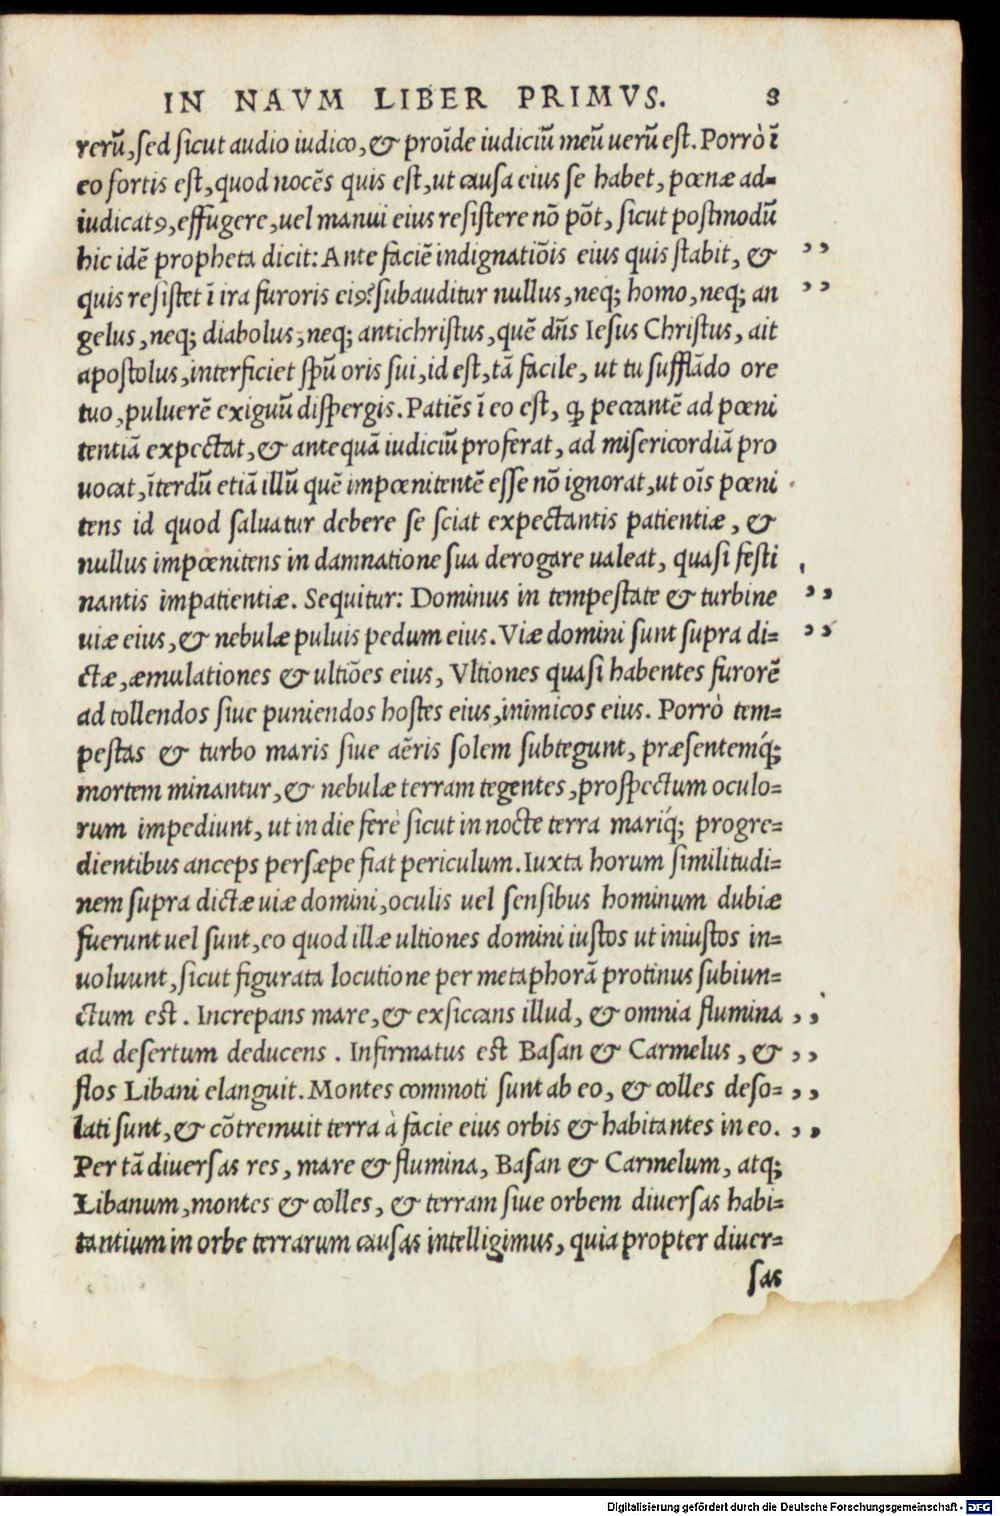 IN NAVM LIBER PRIMVS. 8
rerū, sed sicut audio iudico, & proīde iudiciū meū uerū est. Porrò ī
eo fortis est, quod nocēs quis est, ut causa eius se habet, pœnæ ad=
iudicatꝰ, effugere, uel manui eius resistere nō pōt, sicut postmodū
hic idē propheta dicit: Ante faciē indignatiōis eius quis stabit, & ,,
quis resistet ī ira furoris eiꝰ? subauditur nullus, neq; homo, neq; an ,,
gelus, neq; diabolus, neq; antichristus, quē dn̄s Iesus Christus, ait
apostolus, interficiet sp̄u oris sui, id est, tā facile, ut tu sufflādo ore
tuo, puluerē exiguū dispergis. Patiēs ī eo est, ꝙ peccantē ad pœni
tentiā expectat, & antequā iudiciū proferat, ad misericordiā pro
uocat, īterdū etiā illū quē impœnitentē esse nō ignorat, ut oīs pœni
tens id quod saluatur debere se sciat expectantis patientiæ, &
nullus impœnitens in damnatione sua derogare ualeat, quasi festi
nantis impatientiæ. Sequitur: Dominus in tempestate & turbine ,,
uiæ eius, & nebulæ puluis pedum eius. Viæ domini sunt supra di= ,,
ctæ, æmulationes & ultiōes eius, Vltiones quasi habentes furorē
ad tollendos siue puniendos hostes eius, inimicos eius. Porrò tem=
pestas & turbo maris siue aëris solem subtegunt, præsentemq́;
mortem minantur, & nebulæ terram tegentes, prospectum oculo=
rum impediunt, ut in die ferè sicut in nocte terra mariq́; progre=
dientibus anceps persæpe fiat periculum. Iuxta horum similitudi=
nem supra dictæ uiæ domini, oculis uel sensibus hominum dubiæ
fuerunt uel sunt, eo quod illæ ultiones domini iustos ut iniustos in=
uoluunt, sicut figurata locutione per metaphorā protinus subiun=
ctum est. Increpans mare, & exsiccans illud, & omnia flumina ,,
ad desertum deducens. Infirmatus est Basan & Carmelus, & ,,
flos Libani elanguit. Montes commoti sunt ab eo, & colles deso= ,,
lati sunt, & cōtremuit terra à facie eius orbis & habitantes in eo. ,,
Per tā diuersas res, mare & flumina, Basan & Carmelum, atq;
Libanum, montes & colles, & terram siue orbem diuersas habi=
tantium in orbe terrarum causas intelligimus, quia propter diuer=
sas
Digitalisierung gefördert durch die Deutsche Forschungsgemeinschaft - DFG